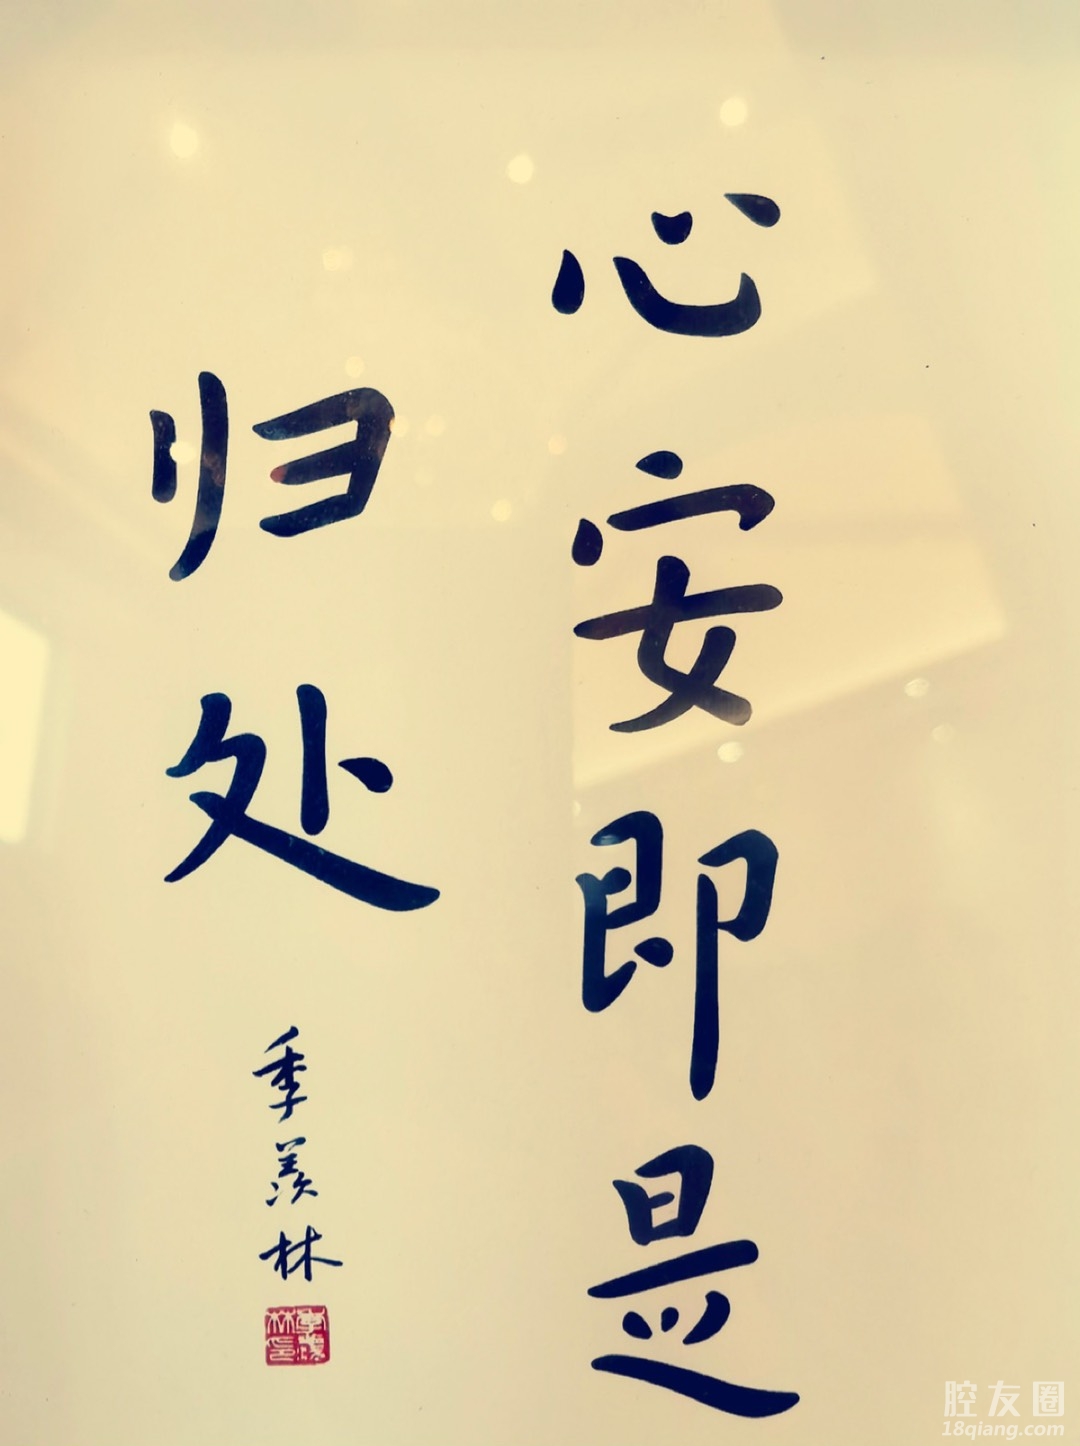 心安即是
归处
季羡林
季羡林印
腔友圈
18qiang.com